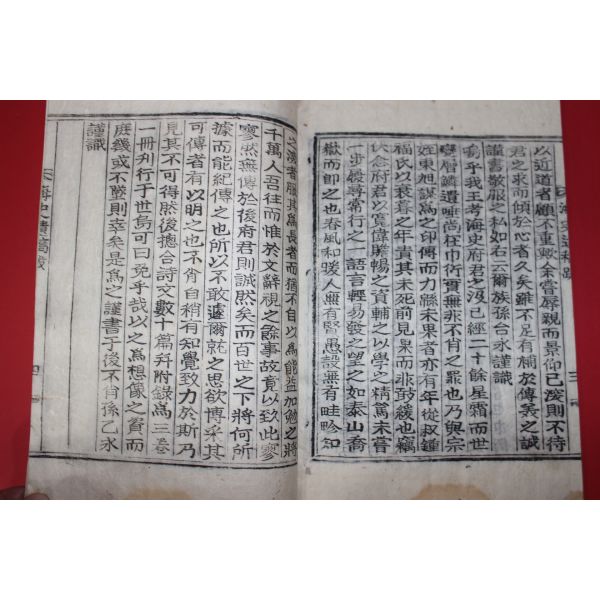 以近道者顧不重歟余嘗辱親而景仰已深則不待
君之求而傾於心者久矣雖不足有補於傳義之誠
謹書敬服之私如右云爾族孫台永謹識
嗚乎我王考海史府君之沒已經二十餘星霜而世
變層鱗遺唾尚在巾衍實無非不肖之罪也乃與宗
姪東旭謀爲之印傳而力緜未果者亦有年從叔鍾
福氏以衰暮之年責其未死前見果而非鼓緩也竊
伏念府君以寬偉贍暢之資輔之以學之精篤未嘗
一步嫚尋常行之一語言輕易發之望之如泰山喬
嶽而即之也春風和暖人無有賢愚設無有畦畛知
之深者服其爲長者而猶不自以爲能益加勉之將
千萬人吾往而惟於文辭視之餘事故竟以致此寥
寥然無傳於後府君則誠然矣而百世之下將何所
據而能紀傳之也所以不敢遽爾就之思欲博采其
可傳者有以明之也不肖自稍有知覺致力於斯乃
見其不可得然後摠合詩文數十篇幷附錄爲三卷
一冊刊行于世烏可曰免乎哉以之爲想像之資而
庶幾或不墜則幸矣是爲之謹書于後不肖孫乙永
謹識